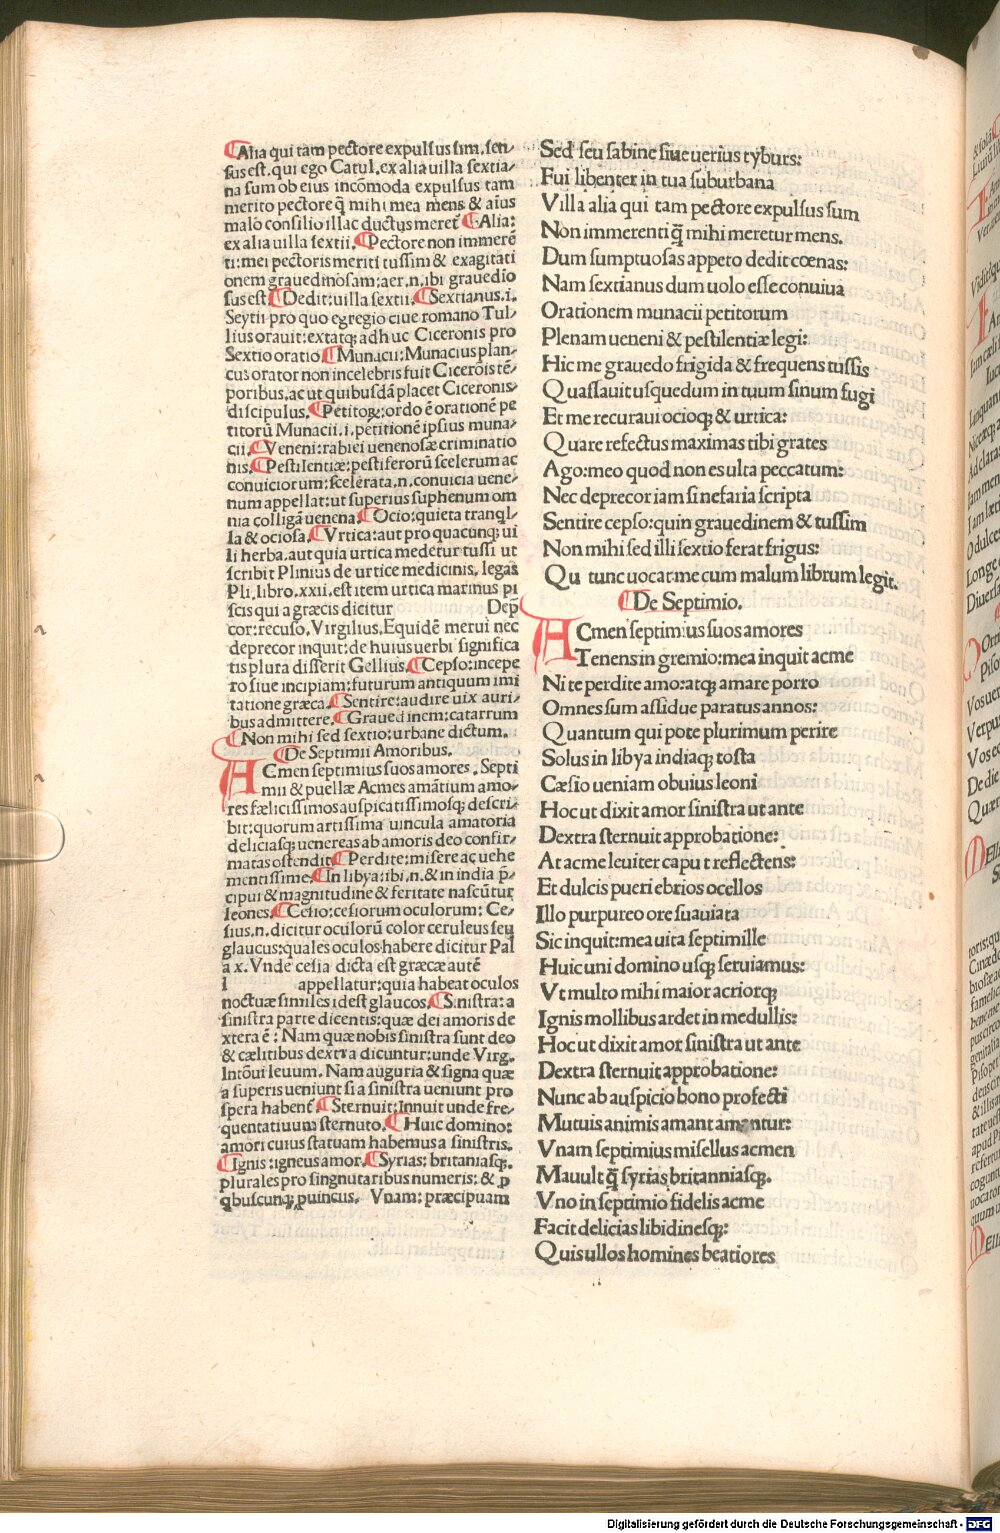 Alia qui tam pectore expulsus sim. sen-
sus est. qui ego Catul. ex alia uilla sextia-
na sum ob eius incōmoda expulsus tam
merito pectore q̄ mihi mea mens & aius
malo consilio illac ductus meret̄ Alia:
ex alia uilla sextii. Pectore non immerē
ti: mei pectoris meriti tussim & exagitati
onem grauedinosam: aer. n. ibi grauedio
sus est Dedit: uilla sextii. Sextianus. i.
Seytii pro quo egregio ciue romano Tul-
lius orauit: extatq; adhuc Ciceronis pro
Sextio oratio Munaci: Munacius plan-
cus orator non incelebris fuit Cicerōis tē-
poribus. ac ut quibusdā placet Ciceronis
discipulus. Petitoꝝ: ordo ē orationē pe
titorū Munacii. i. petitionē ipsius muna-
cii. Veneni: rabiei uenenosæ criminatio
nis. Pestilentiæ: pestiferorū scelerum ac
conuiciorum: scelerata. n. conuicia uene-
num appellat: ut superius suphenum om
nia colligā uenena. Ocio: quieta tranql-
la & ociosa. Vrtica: aut pro quacunq; ui
li herba. aut quia urtica medetur tussi ut
scribit Plinius de urtice medicinis. legas
Pli. libro. xxii. est item urtica marinus pi
scis qui a græcis dicitur Dep̄
cor: recuso. Virgilius. Equidē merui nec
deprecor inquit: de huius uerbi significa
tis plura disserit Gellius. Cepso: incepe
ro siue incipiam: futurum antiquum imi
tatione græca. Sentire: audire uix auri-
bus admittere. Grauedinem: catarrum
Non mihi sed sextio: urbane dictum.
De Septimii Amoribus.
ACmen septimius suos amores. Septi
mii & puellæ Acmes amātium amo-
res fælicissimos auspicatissimosq; descri-
bit: quorum artissima uincula amatoria
deliciasq; uenereas ab amoris deo confir-
matas ostendit Perdite: misere ac uehe
mentissime. In libya: ibi. n. & in india p̄-
cipui & magnitudine & feritate nascūtur
leones. Cesio: cesiorum oculorum: Ce-
sius. n. dicitur oculorū color ceruleus seu
glaucus: quales oculos habere dicitur Pal
a x. Vnde cesia dicta est græcæ autē
l appellatur: quia habeat oculos
noctuæ similes idest glaucos. Sinistra: a
sinistra parte dicentis: quæ dei amoris de
xtera ē: Nam quæ nobis sinistra sunt deo
& cælitibus dextra dicuntur: unde Virg.
Intōui leuum. Nam auguria & signa quæ
a superis ueniunt si a sinistra ueniunt pro
spera habent̄ Sternuit: Innuit unde fre-
quentatiuum sternuto. Huic domino:
amori cuius statuam habemus a sinistris.
Ignis: igneus amor. Syrias: britaniasq;.
plurales pro singnutaribus numeris: & ꝓ
qbuscunq; ꝓuincus. Vnam: præcipuam
Sed seu sabine siue uerius tyburs:
Fui libenter in tua suburbana
Villa alia qui tam pectore expulsus sum
Non immerenti q̄ mihi meretur mens.
Dum sumptuosas appeto dedit cœnas:
Nam sextianus dum uolo esse conuiua
Orationem munacii petitorum
Plenam ueneni & pestilentiæ legi:
Hic me grauedo frigida & frequens tussis
Quassauit usquedum in tuum sinum fugi
Et me recuraui ocioq; & urtica:
Quare refectus maximas tibi grates
Ago: meo quod non es ulta peccatum:
Nec deprecor iam si nefaria scripta
Sentire cepso: quin grauedinem & tussim
Non mihi sed illi sextio ferat frigus:
Qu tunc uocat me cum malum librum legit.
De Septimio.
ACmen septimius suos amores
Tenens in gremio: mea inquit acme
Ni te perdite amo: atq; amare porro
Omnes sum assidue paratus annos:
Quantum qui pote plurimum perire
Solus in libya indiaq; tosta
Cæsio ueniam obuius leoni
Hoc ut dixit amor sinistra ut ante
Dextra sternuit approbatione:
At acme leuiter caput reflectens:
Et dulcis pueri ebrios ocellos
Illo purpureo ore suauiata
Sic inquit: mea uita septimille
Huic uni domino usq; seruiamus:
Vt multo mihi maior acriorq;
Ignis mollibus ardet in medullis:
Hoc ut dixit amor sinistra ut ante
Dextra sternuit approbatione:
Nunc ab auspicio bono profecti
Mutuis animis amant amantur:
Vnam septimius misellus acmen
Mauult q̄ syrias britanniasq;.
Vno in septimio fidelis acme
Facit delicias libidinesq;:
Quis ullos homines beatiores
Digitalisierung gefördert durch die Deutsche Forschungsgemeinschaft - DFG